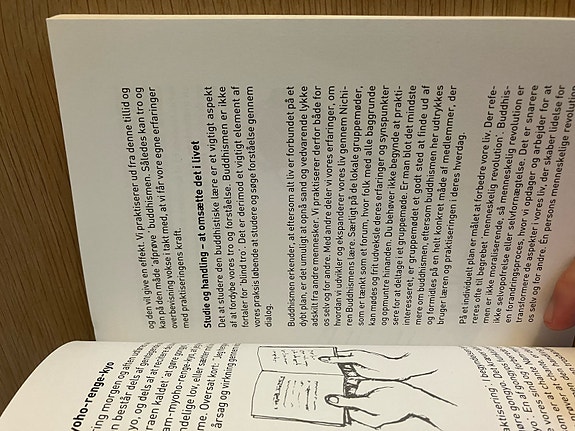 og den vil give en effekt. Vi praktiserer ud fra denne tillid og
kan på den måde 'afprøve' buddhismen. Således kan tro og
overbevisning vokse i takt med, at vi får vore egne erfaringer
med praktiseringens kraft.
Studie og handling – at omsætte det i livet
Det at studere den buddhistiske lære er et vigtigt aspekt
af at fordybe vores tro og forståelse. Buddhismen er ikke
fortaler for 'blind tro'. Det er derimod et vigtigt element af
vores praksis løbende at studere og søge forståelse gennem
dialog.
Buddhismen erkender, at eftersom alt liv er forbundet på et
dybt plan, er det umuligt at opnå sand og vedvarende lykke
adskilt fra andre mennesker. Vi praktiserer derfor både for
os selv og for andre. Med andre deler vi vores erfaringer, om
hvordan vi udvikler og ekspanderer vores liv gennem Nichi-
ren Buddhismens lære. Særligt på de lokale gruppemøder,
som er tænkt som et forum, hvor folk med alle baggrunde
kan mødes og frit udveksle deres erfaringer og synspunkter
og opmuntre hinanden. Du behøver ikke begynde at prakti-
sere for at deltage i et gruppemøde. Er man blot det mindste
interesseret, er gruppemødet et godt sted at finde ud af
mere om buddhismen, eftersom buddhismen her udtrykkes
og formidles på en helt konkret måde af medlemmer, der
bruger læren og praktiseringen i deres hverdag.
På et individuelt plan er målet at forbedre vore liv. Der refe-
reres ofte til begrebet 'menneskelig revolution'. Buddhis-
men er ikke moraliserende, så menneskelig revolution er
ikke selvopofrelse eller selvfornægtelse. Det er snarere
en forandringsproces, hvor vi opdager og arbejder for at
transformere de aspekter i vores liv, der skaber lidelse for
os selv og for andre. En persons menneskelige revolution
yoho-renge-kyo
ring morgen og aften
består dels af
yo, og dels af at
kaldet at gøre
am-myoho-renge-kyo, at
delige lov, eller
me. Oversat kort: 'Jeg
årsag og virkning gennem